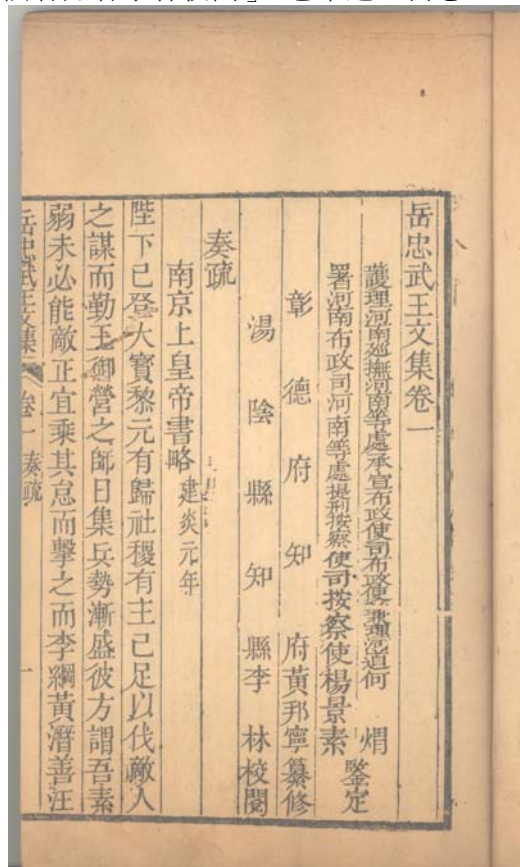 岳忠武王文集卷一
護理河南巡撫河南等處承宣布政使司布政使兼理河道何 煟
署河南布政司河南等處提刑按察使司按察使楊景素
鑒定
彰德府知府黃邦寧纂修
湯陰縣知縣李林校閱
奏疏
南京上皇帝書略 建炎元年
陛下已登大寶黎元有歸社稷有主已足以伐敵人
之謀而勤王御營之師日集兵勢漸盛彼方謂吾素
弱未必能敵正宜乘其怠而擊之而李綱黃潛善汪
岳忠武王文集 卷一 奏疏 一